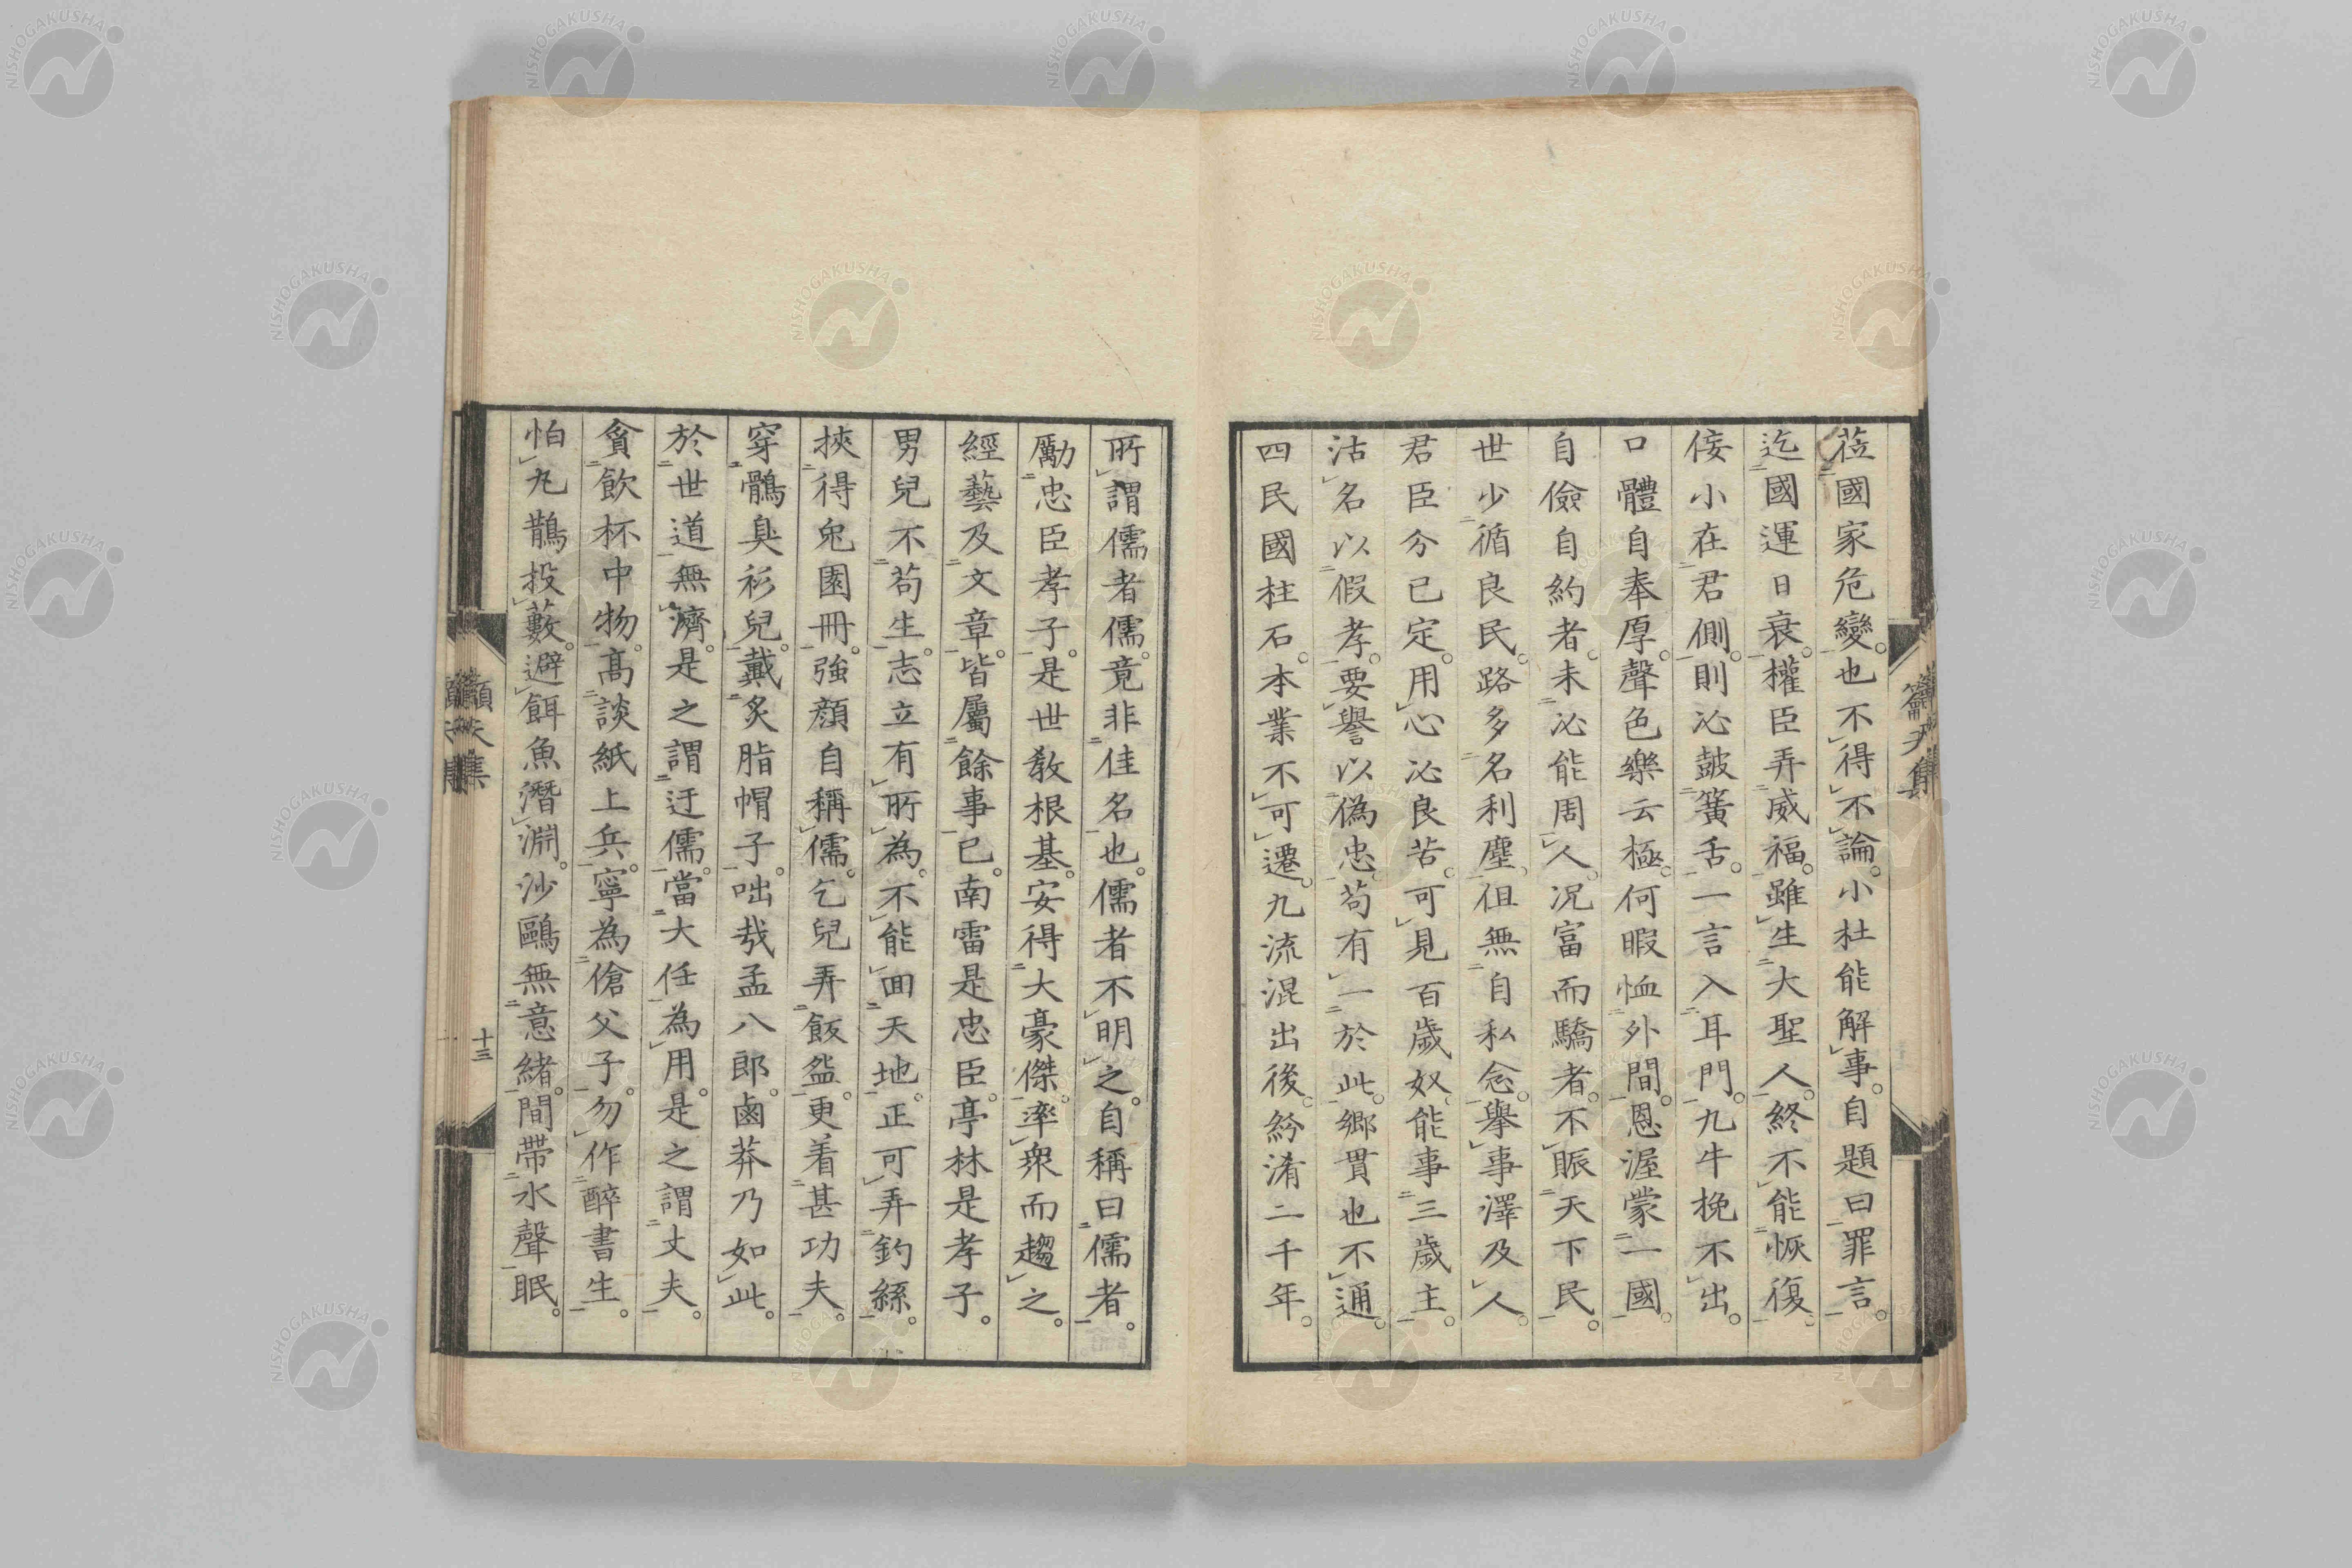 莅國家危變也不得不論小杜能解事。自題曰罪言。
迄國運日衰。權臣弄威福。雖生大聖人。終不能恢復。
侫小在君側。則必鼓簧舌。一言入耳門。九牛挽不出。
口體自奉厚。聲色樂云極。何暇恤外間。恩渥蒙一國。
自儉自約者。未必能周人。况富而驕者。不賑天下民。
世少循良民。路多名利塵。但無自私念。擧事澤及人。
君臣分已定。用心必良苦。可見百歲奴。能事三歲主。
沽名以假孝。要譽以偽忠。苟有一於此。鄉貫也不通。
四民國柱石。本業不可遷。九流混出後。紛淆二千年。
所謂儒者儒。竟非佳名也。儒者不明之。自稱曰儒者。
勵忠臣孝子。是世教根基。安得大豪傑。率衆而趨之。
經藝及文章。皆屬餘事已。南雷是忠臣。亭林是孝子。
男兒不苟生。志立有所為。不能回天地。正可弄釣絲。
挾得兔園冊。強顏自稱儒。乞兒弄飯盌。更着甚功夫。
穿鶻臭衫兒。戴炙脂帽子。咄哉孟八郎。鹵莽乃如此。
於世道無濟。是之謂迂儒。當大任為用。是之謂丈夫。
貪飲杯中物。高談紙上兵。寧為傖父子。勿作醉書生。
怕丸鵲投藪。避餌魚潛淵。沙鷗無意緒。間帶水聲眠。
十三